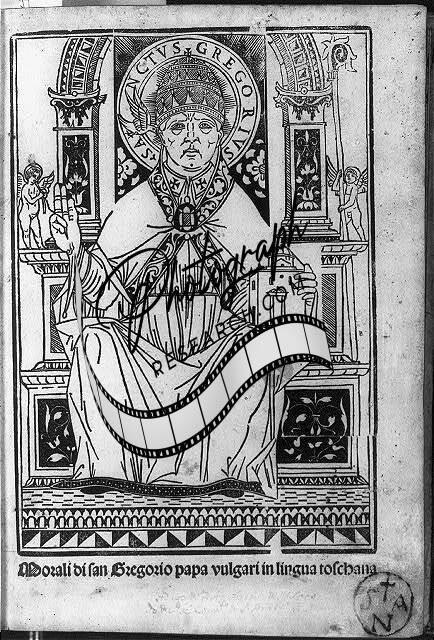 SANCTVS GREGORIVS
Photograph
RESEARCH.COM
Morali di san Gregorio papa vulgari in lingua toschana
S A
N